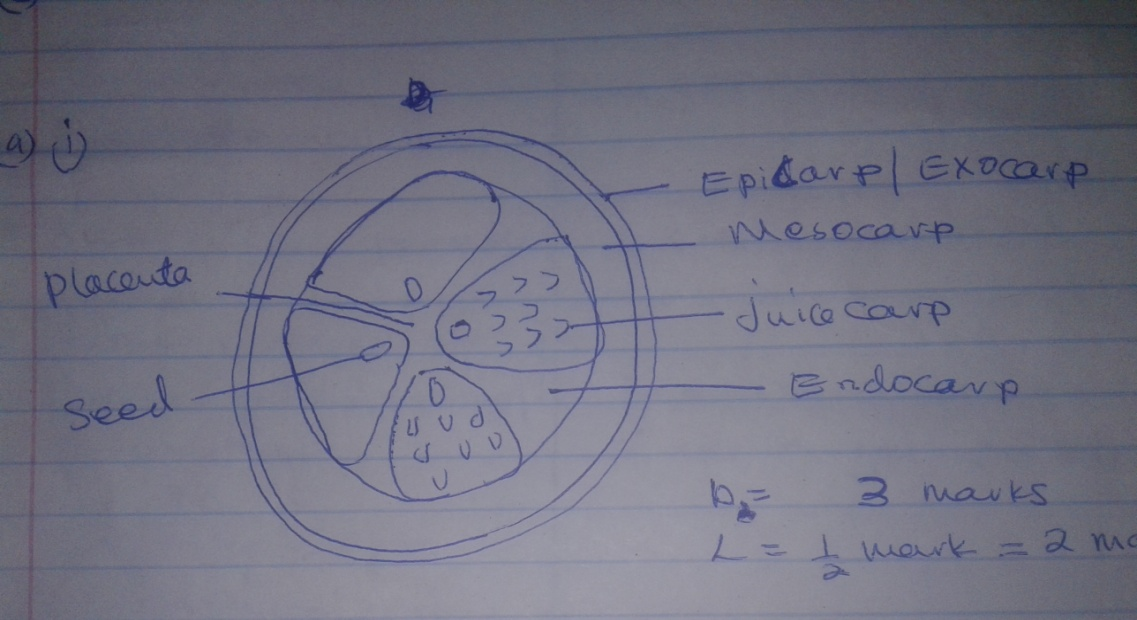 a) i)
Epicarp/ Exocarp
Mesocarp
placenta
juice carp
Endocarp
Seed
D = 3 marks
L = 1/2 mark = 2 ma